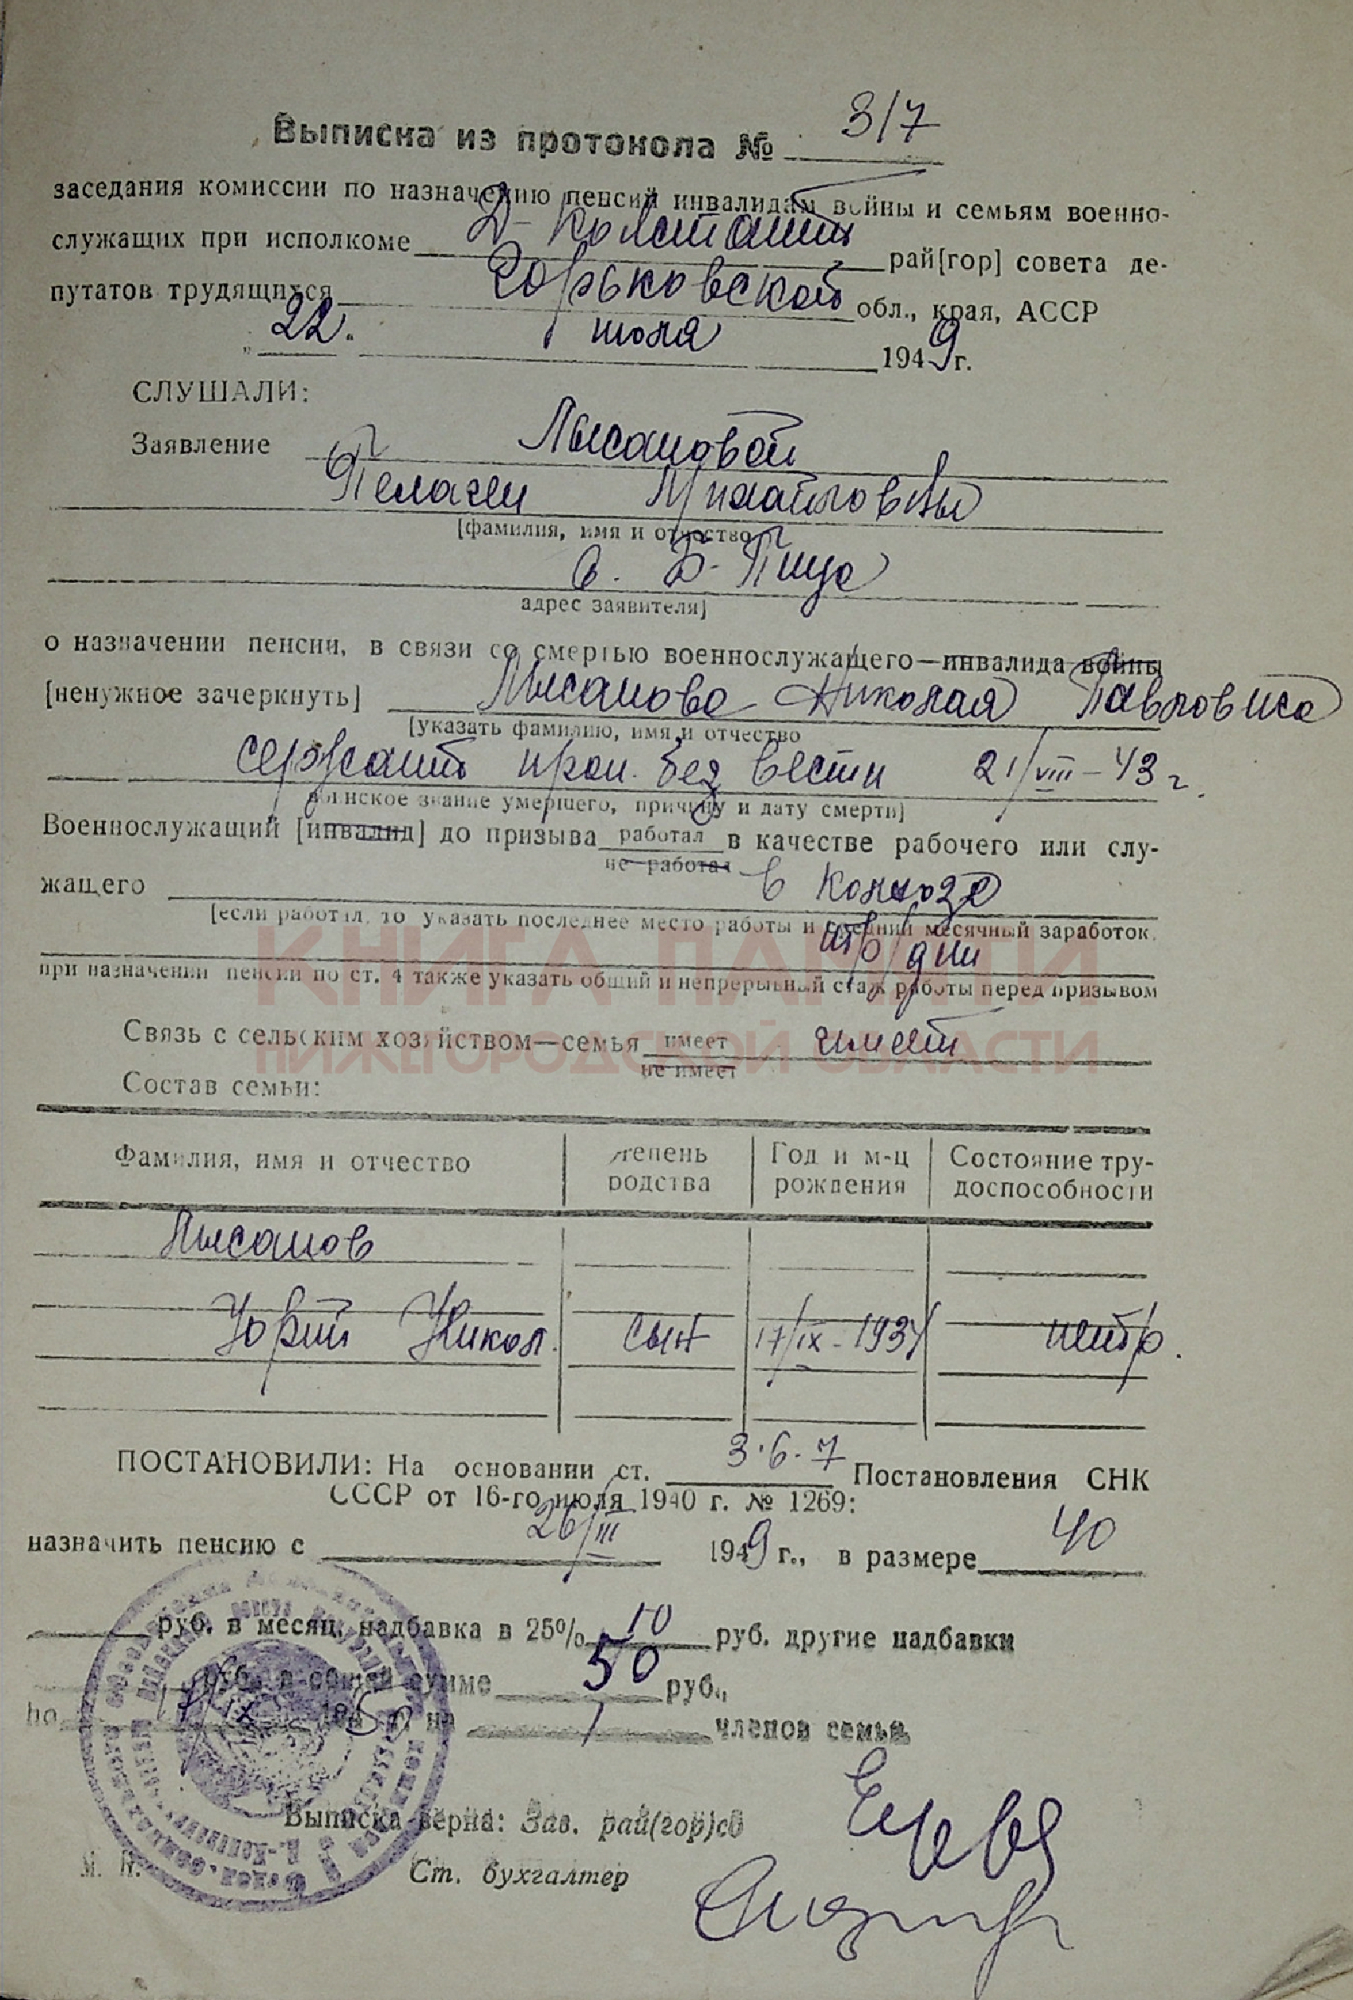 Выписка из протокола № 3/7
заседания комиссии по назначению пенсий инвалидам войны и семьям военно-
служащих при исполкоме Д-Константин рай[гор] совета де-
путатов трудящихся Горьковской обл., края, АССР
„22" июля 1949 г.
СЛУШАЛИ:
Заявление Лысановой
Пелагеи Михайловны
[фамилия, имя и отчество
с. Б-Пица
адрес заявителя]
о назначении пенсии, в связи со смертью военнослужащего—инвалида войны
[ненужное зачеркнуть] Лысанова Николая Павловича
[указать фамилию, имя и отчество
сержант проп. без вести 21/VIII-43 г.
воинское звание умершего, причину и дату смерти]
Военнослужащий [инвалид] до призыва работал в качестве рабочего или слу-
не работал
жащего в колхозе
[если работал, то указать последнее место работы и средний месячный заработок,
тр/дни
при назначении пенсии по ст. 4 также указать общий и непрерывный стаж работы перед призывом
КНИГА ПАМЯТИ
НИЖЕГОРОДСКОЙ ОБЛАСТИ
Связь с сельским хозяйством—семья имеет имеет
не имеет
Состав семьи:
Фамилия, имя и отчество степень родства Год и м-ц рождения Состояние тру-доспособности
Лысанов
Юрий Никол. сын 17/IX-1934 нетр.
ПОСТАНОВИЛИ: На основании ст. 3.6.7 Постановления СНК
СССР от 16-го июля 1940 г. № 1269:
назначить пенсию с 26/III 1949 г., в размере 40
руб. в месяц, надбавка в 25% 10 руб. другие надбавки
руб. в общей сумме 50 руб.,
по 17/IX 1950 г. на 1 членов семьи.
Выписка верна: Зав. рай(гор)со
М. П. Ст. бухгалтер